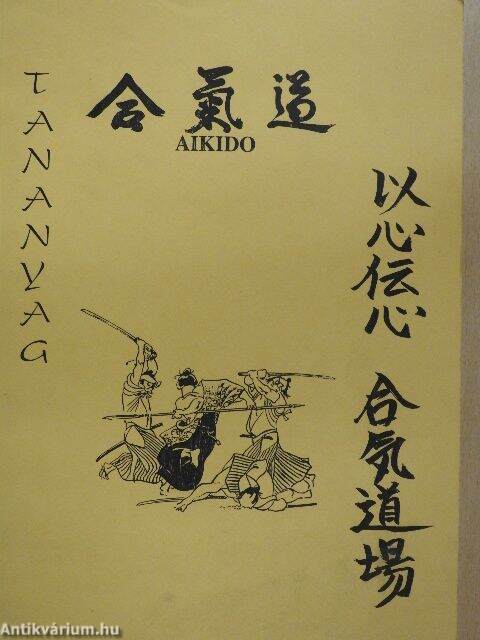 TANANYAG
合氣道
AIKIDO
以心伝心 合気道場
Antikvárium.hu